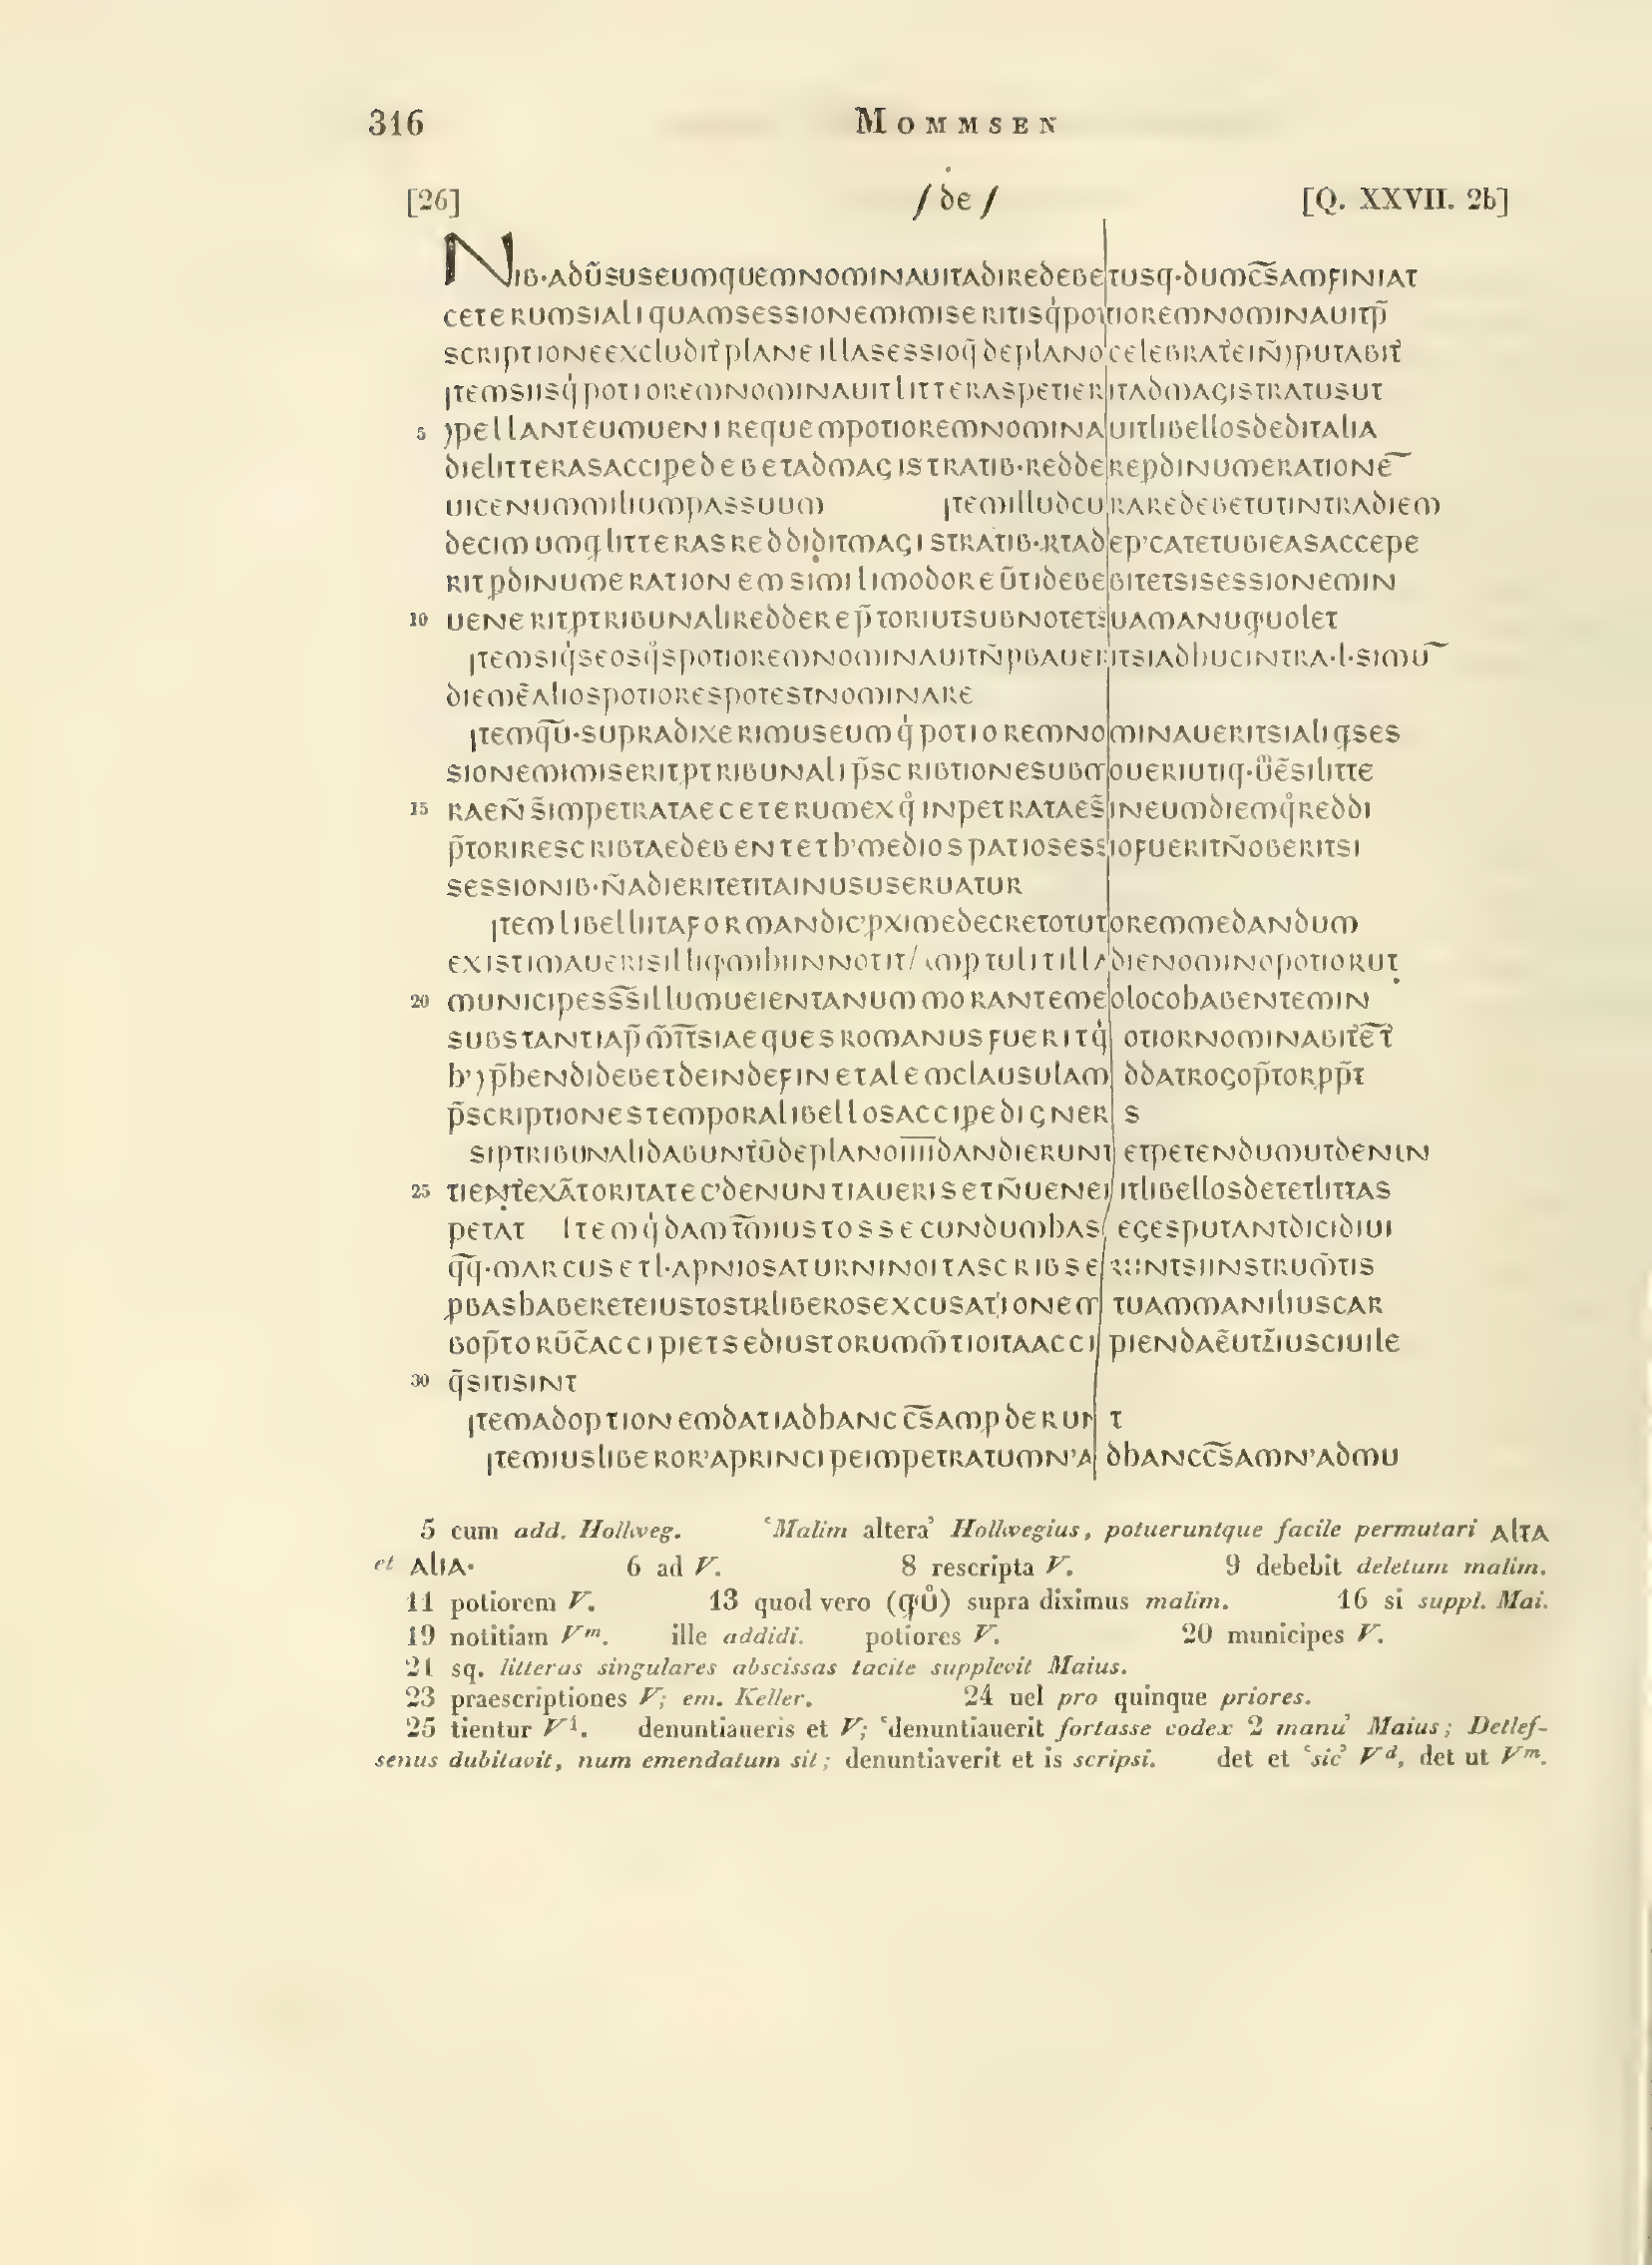 316 MOMMSEN
[26] / ḋe / [Q. XXVII. 2b]
NIB·ADŪSUSEUMQUEMNOMINAUITADIREDEBETUSQ·DUMC̄S̄AMFINIAT
CETERUMSIALIQUAMSESSIONEMIMISERITISQ̇POTIOREMNOMINAUITP̄
ITEMSIISQ̇POTIOREMNOMINAUITLITTERASPETIERITADMAGISTRATUSUT
5 )PELLANTEUMUENIREQUEMPOTIOREMNOMINAUITLIBELLOSDEDITALIA
DIELITTERASACCIPEDEBETADMAGISTRATIB·REDDEREPDINUMERATIONĒ
UICENUMMILIUMPASSUUM ITEMILLUDCURAREDEBETUTINTRADIEM
DECIMUMQLITTERASREDDIDITMAGISTRATIB·RTADEP'CATETUBIEASACCEPE
RITPDINUMERATIONEMSIMILIMODOREŪTIDEBEBITETSISESSIONEMIN
10 UENERITPTRIBUNALIREDDEREP̄TORIUTSUBNOTETSUAMANUQ'UOLET
ITEMSIQ̇SEOSQ̊SPOTIOREMNOMINAUITN̄PBAUERITSIADHUCINTRA·L·SIMŪ
DIEMĒALIOSPOTIORESPOTESTNOMINARE
ITEMQ̄Ū·SUPRADIXERIMUSEUMQ̇POTIOREMNOMINAUERITSIALIQ'SES
SIONEMIMISERITPTRIBUNALIP̄SCRIBTIONESUBMOUERIUTIQ·ŪĒSILITTE
15 RAEN̄S̄IMPETRATAECETERUMEXQ̊INPETRATAES̄INEUMDIEMQ̊REDDI
P̄TORIRESCRIBTAEDEBENTETH'MEDIOSPATIOSESSIOFUERITN̄OBERITSI
SESSIONIB·N̄ADIERITETITAINUSUSERUATUR
ITEMLIBELLIITAFORMANDIC'PXIMEDECRETOTUTOREMMEDANDUM
20 MUNICIPESS̄S̄ILLUMUEIENTANUMMORANTEMEOLOCOHABENTEMIN
SUBSTANTIAP̄M̄T̄T̄SIAEQUESROMANUSFUERITQ̇ OTIORNOMINABITĒT̄
H')P̄HENDIDEBETDEINDEFINETALEMCLAUSULAM DDATROGOP̄TORPP̄T
P̄SCRIPTIONESTEMPORALIBELLOSACCIPEDIGNER S
SIPTRIBUNALIDABUNT̄ŪDEPLANOI̅I̅I̅I̅DANDIERUNT ETPETENDUMUTDENUN
25 TIENT̄EXĀTORITATEC'DENUNTIAUERISETN̄UENERITLIBELLOSDETETLITTAS
PETAT ITEMQ̇DAMT̄M̄IUSTOSSECUNDUMHAS EGESPUTANTDICIDIUI
Q̄Q̄·MARCUSETL·APNIOSATURNINOITASCRIBSERUNTSIINSTRUM̄TIS
PBASHABERETEIUSTOSTRLIBEROSEXCUSATIONEM TUAMMANILIUSCAR
BOP̄TORŪC̄ACCIPIETSEDIUSTORUMM̄TIOITAACCIPIENDAĒUTZ̄IUSCIUILE
30 Q̄SITISINT
ITEMADOPTIONEMDATIADHANCC̄S̄AMPDERUN T
ITEMIUSLIBEROR'APRINCIPEIMPETRATUMN'A DHANCC̄S̄AMN'ADMU
5 cum add. Hollweg. 'Malim altera' Hollwegius, potueruntque facile permutari ALTA
et ALIA· 6 ad V. 8 rescripta V. 9 debebit deletum malim.
11 potiorem V. 13 quod vero (q'ů) supra diximus malim. 16 si suppl. Mai.
19 notitiam Vᵐ. ille addidi. potiores V. 20 municipes V.
21 sq. litteras singulares abscissas tacite supplevit Maius.
23 praescriptiones V; em. Keller. 24 uel pro quinque priores.
25 tientur V¹. denuntiaueris et V; 'denuntiauerit fortasse codex 2 manu' Maius; Detlef-
senus dubitavit, num emendatum sit; denuntiaverit et is scripsi. det et 'sic' Vᵈ, det ut Vᵐ.